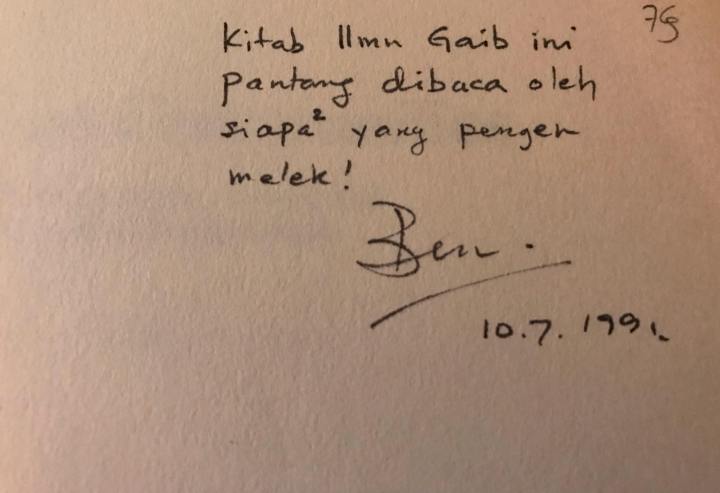 75
Kitab Ilmu Gaib ini
pantang dibaca oleh
siapa² yang pengen
melek!
Ben.
10.7.1991.